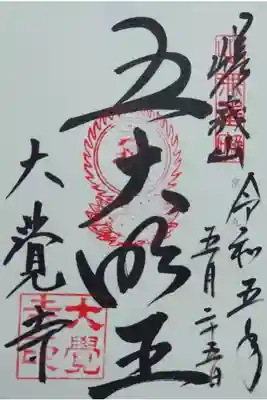 嵯峨山
令和五年
五月二十五日
五大明王
大覺寺
大覺